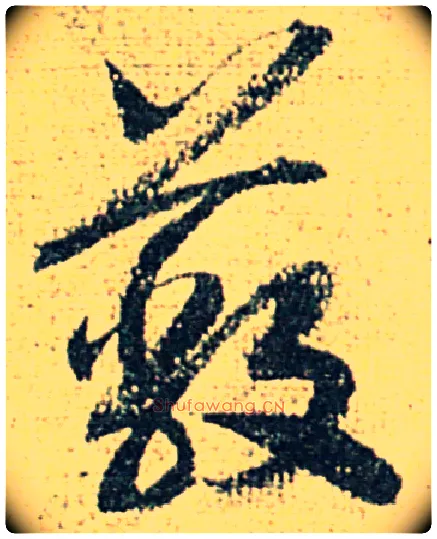 藪
Shufawang.CN